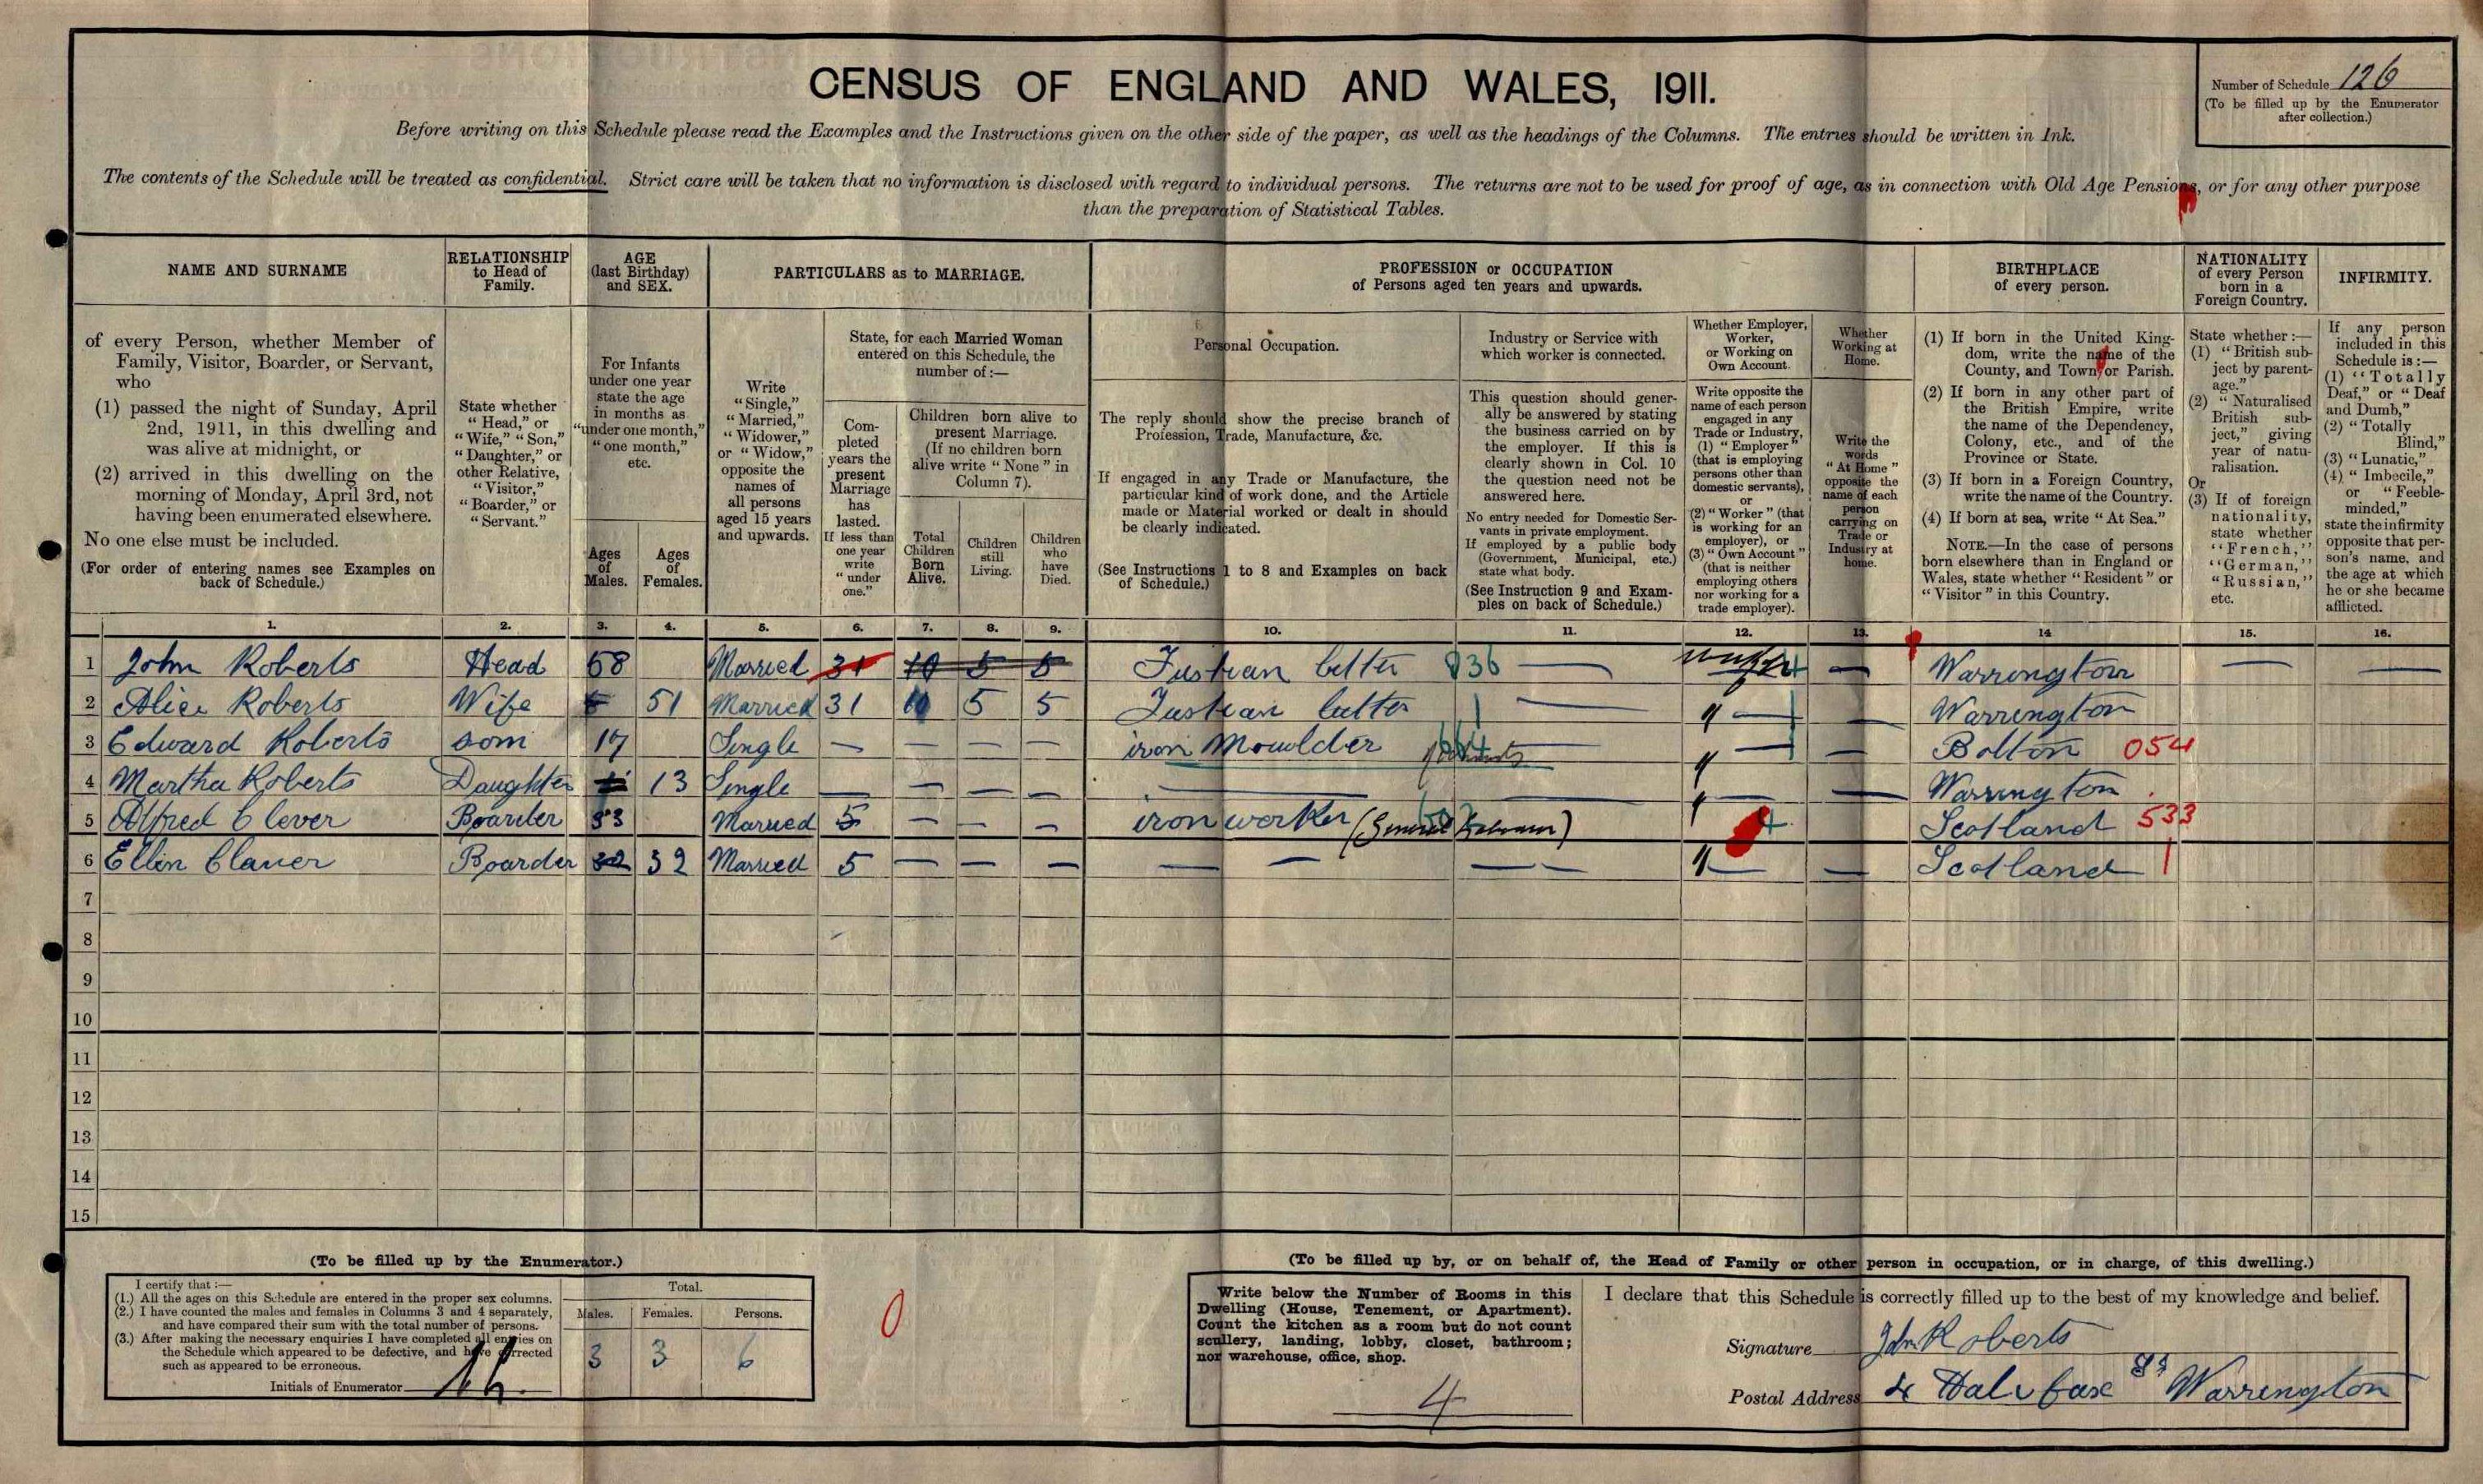 CENSUS OF ENGLAND AND WALES, 1911.
Number of Schedule 126
(To be filled up by the Enumerator
after collection.)
Before writing on this Schedule please read the Examples and the Instructions given on the other side of the paper, as well as the headings of the Columns. The entries should be written in Ink.
The contents of the Schedule will be treated as confidential. Strict care will be taken that no information is disclosed with regard to individual persons. The returns are not to be used for proof of age, as in connection with Old Age Pensions, or for any other purpose
than the preparation of Statistical Tables.
NAME AND SURNAME
of every Person, whether Member of
Family, Visitor, Boarder, or Servant,
who
(1) passed the night of Sunday, April
2nd, 1911, in this dwelling and
was alive at midnight, or
(2) arrived in this dwelling on the
morning of Monday, April 3rd, not
having been enumerated elsewhere.
No one else must be included.
(For order of entering names see Examples on
back of Schedule.)
RELATIONSHIP
to Head of
Family.
State whether
"Head," or
"Wife," "Son,"
"Daughter," or
other Relative,
"Visitor,"
"Boarder," or
"Servant."
AGE
(last Birthday)
and SEX.
For Infants
under one year
state the age
in months as
"under one month,"
"one month,"
etc.
Ages
of
Males.
Ages
of
Females.
PARTICULARS as to MARRIAGE.
Write
"Single,"
"Married,"
"Widower,"
or "Widow,"
opposite the
names of
all persons
aged 15 years
and upwards.
State, for each Married Woman
entered on this Schedule, the
number of:—
Com-
pleted
years the
present
Marriage
has
lasted.
If less than
one year
write
"under
one."
Children born alive to
present Marriage.
(If no children born
alive write "None" in
Column 7).
Total
Children
Born
Alive.
Children
still
Living.
Children
who
have
Died.
PROFESSION or OCCUPATION
of Persons aged ten years and upwards.
Personal Occupation.
The reply should show the precise branch of
Profession, Trade, Manufacture, &c.
If engaged in any Trade or Manufacture, the
particular kind of work done, and the Article
made or Material worked or dealt in should
be clearly indicated.
(See Instructions 1 to 8 and Examples on back
of Schedule.)
Industry or Service with
which worker is connected.
This question should gener-
ally be answered by stating
the business carried on by
the employer. If this is
clearly shown in Col. 10
the question need not be
answered here.
No entry needed for Domestic Ser-
vants in private employment.
If employed by a public body
(Government, Municipal, etc.)
state what body.
(See Instruction 9 and Exam-
ples on back of Schedule.)
Whether Employer,
Worker,
or Working on
Own Account.
Write opposite the
name of each person
engaged in any
Trade or Industry,
(1) "Employer"
(that is employing
persons other than
domestic servants),
or
(2) "Worker" (that
is working for an
employer), or
(3) "Own Account"
(that is neither
employing others
nor working for a
trade employer).
Whether
Working at
Home.
Write the
words
"At Home"
opposite the
name of each
person
carrying on
Trade or
Industry at
home.
BIRTHPLACE
of every person.
(1) If born in the United King-
dom, write the name of the
County, and Town or Parish.
(2) If born in any other part of
the British Empire, write
the name of the Dependency,
Colony, etc., and of the
Province or State.
(3) If born in a Foreign Country,
write the name of the Country.
(4) If born at sea, write "At Sea."
NOTE.—In the case of persons
born elsewhere than in England or
Wales, state whether "Resident" or
"Visitor" in this Country.
NATIONALITY
of every Person
born in a
Foreign Country.
State whether:—
(1) "British sub-
ject by parent-
age."
(2) "Naturalised
British sub-
ject," giving
year of natu-
ralisation.
Or
(3) If of foreign
nationality,
state whether
"French,"
"German,"
"Russian,"
etc.
INFIRMITY.
If any person
included in this
Schedule is:—
(1) "Totally
Deaf," or "Deaf
and Dumb,"
(2) "Totally
Blind,"
(3) "Lunatic,"
(4) "Imbecile,"
or "Feeble-
minded,"
state the infirmity
opposite that per-
son's name, and
the age at which
he or she became
afflicted.
1. 2. 3. 4. 5. 6. 7. 8. 9. 10. 11. 12. 13. 14 15. 16.
1 John Roberts Head 58 Married 31 10 5 5 Fustian Cutter 936 — — Warrington — —
2 Alice Roberts Wife 51 Married 31 10 5 5 Fustian Cutter — " — — Warrington
3 Edward Roberts son 17 Single — — — — iron Moulder — " — — Bolton 054
4 Martha Roberts Daughter 13 Single — — — — — — " — — Warrington
5 Alfred Clever Boarder 33 Married 5 — — — iron worker (General " 4 Scotland 533
6 Ellin Claver Boarder 32 32 Married 5 — — — — — — — " — — Scotland
7
8
9
10
11
12
13
14
15
(To be filled up by the Enumerator.)
I certify that:—
(1.) All the ages on this Schedule are entered in the proper sex columns.
(2.) I have counted the males and females in Columns 3 and 4 separately,
and have compared their sum with the total number of persons.
(3.) After making the necessary enquiries I have completed all entries on
the Schedule which appeared to be defective, and have corrected
such as appeared to be erroneous.
Initials of Enumerator
Total.
Males. Females. Persons.
3 3 6
0
(To be filled up by, or on behalf of, the Head of Family or other person in occupation, or in charge, of this dwelling.)
Write below the Number of Rooms in this
Dwelling (House, Tenement, or Apartment).
Count the kitchen as a room but do not count
scullery, landing, lobby, closet, bathroom;
nor warehouse, office, shop.
4
I declare that this Schedule is correctly filled up to the best of my knowledge and belief.
Signature John Roberts
Postal Address 4 Halifax St Warrington